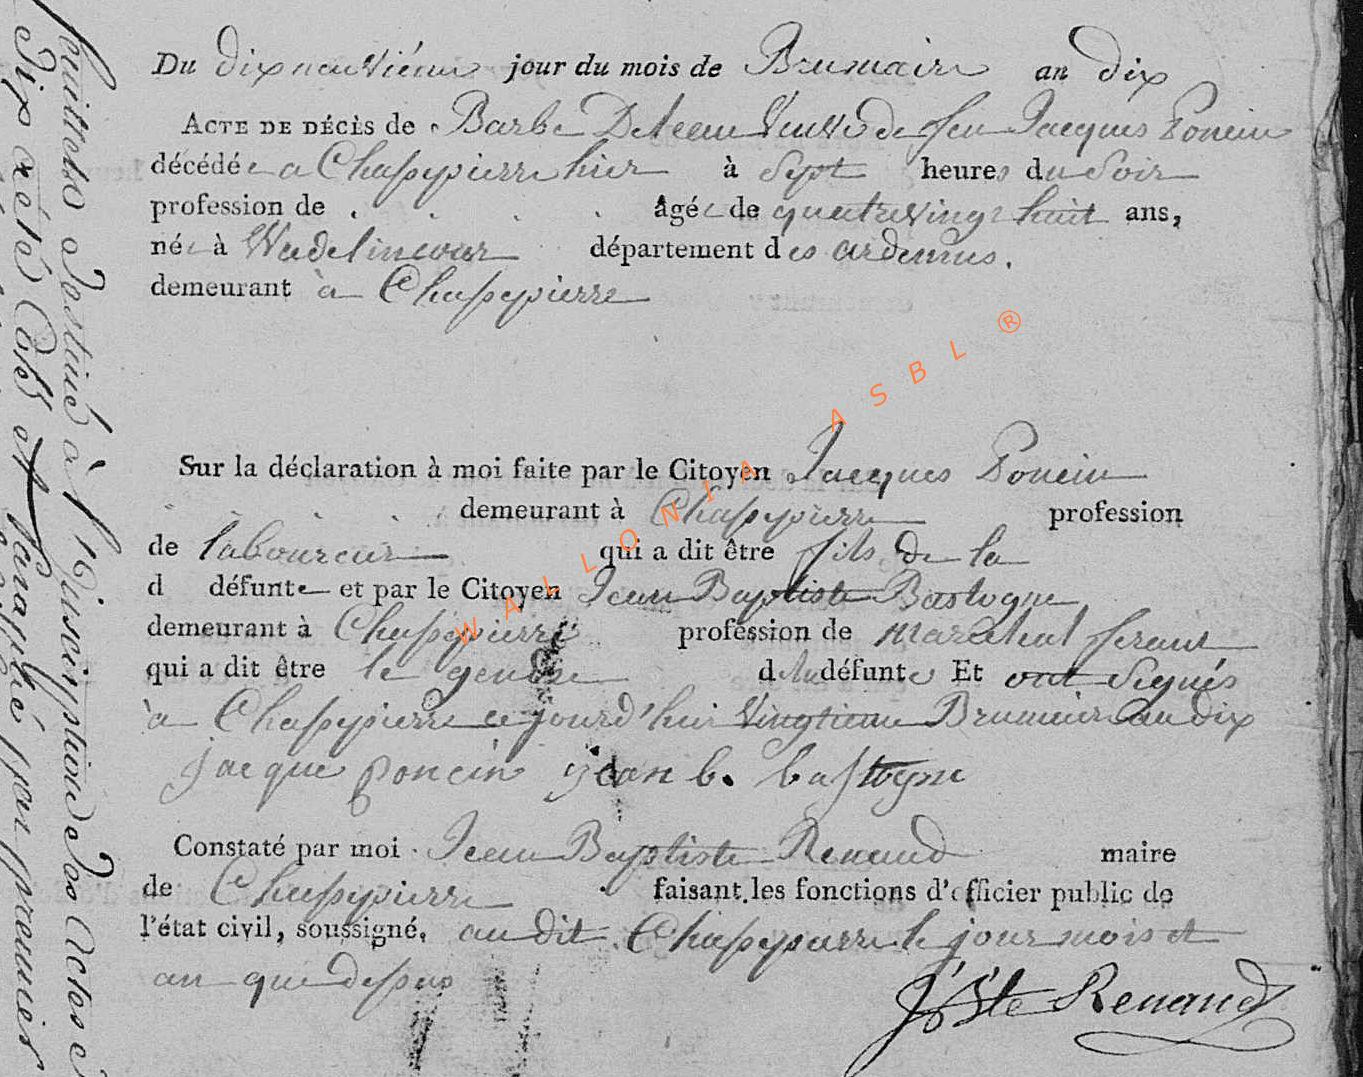 Du dix neuvième jour du mois de Brumaire an dix
ACTE DE DÉCÈS de Barbe Veuve de feu Jacques Poncin
décédée a Chassepierre hier à Sept heures du Soir
profession de . . . . âgée de quatrevingt huit ans,
née à Wadelincour département des ardennes.
demeurant à Chassepierre
Sur la déclaration à moi faite par le Citoyen Jacques Poncin
demeurant à Chassepierre profession
de laboureur qui a dit être fils de la
d défunte et par le Citoyen Jean Baptiste Bastogne
demeurant à Chassepierre profession de marechal ferant
qui a dit être le gendre de la défunte Et ont Signés
à Chassepierre ce jourd'hui Vingtieme Brumaire an dix
jacque poncin jean b. bastogne
Constaté par moi Jean Baptiste Renaud maire
de Chassepierre faisant les fonctions d'officier public de
l'état civil, soussigné. au dit Chassepierre le jour mois et
an que dessus
JBte Renaud
feuillets Destiné à l'inscription des Actes d
Dix a été Coté et Paraphé par premier
WALLONIA ASBL ®